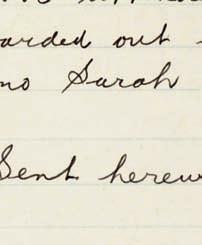 arded out
no Sarah
Sent herew